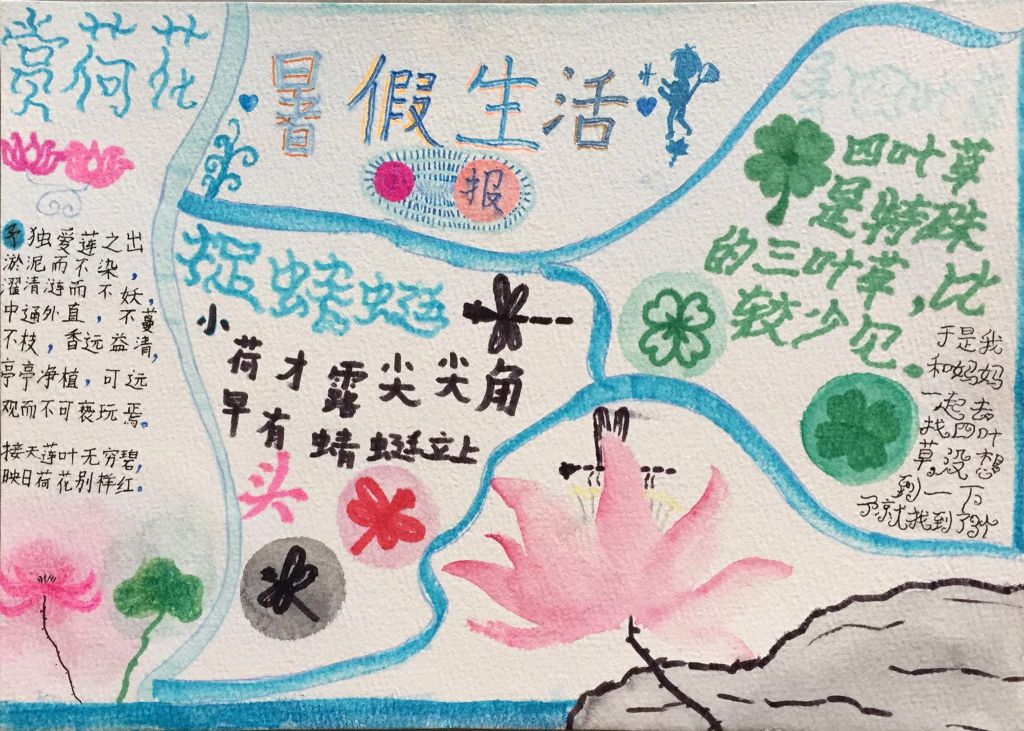 赏荷花
予独爱莲之出
淤泥而不染，
濯清涟而不妖，
中通外直，不蔓
不枝，香远益清，
亭亭净植，可远
观而不可亵玩焉。
接天莲叶无穷碧，
映日荷花别样红。
暑假生活
报
捉蜻蜓
小荷才露尖尖角
早有蜻蜓立上
头
四叶草
是特殊
的三叶草，比
较少见。
于是我
和妈妈
一起去
找四叶
草。没想
到一下
子就找到了3个